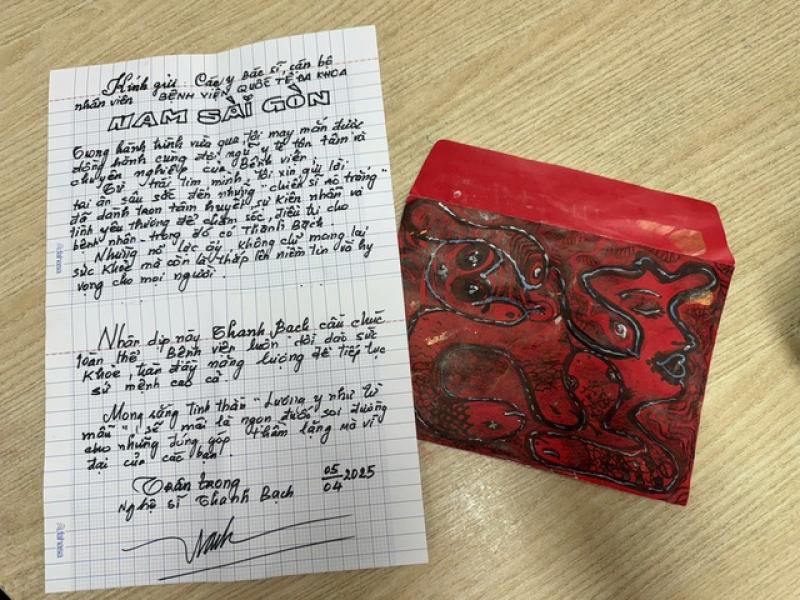 Kính gửi: Các y Bác sĩ, cán bộ
nhân viên BỆNH VIỆN QUỐC TẾ ĐA KHOA
NAM SÀI GÒN
Trong hành trình vừa qua, tôi may mắn được
đồng hành cùng đội ngũ y tế tận tâm và
chuyên nghiệp của Bệnh viện.
Từ trái tim mình, tôi xin gửi lời
tri ân sâu sắc đến những "chiến sĩ áo trắng"
đã dành trọn tâm huyết, sự kiên nhẫn và
tình yêu thương để chăm sóc, điều trị cho
bệnh nhân - trong đó có Thanh Bạch
Những nỗ lực ấy, không chỉ mang lại
sức khỏe mà còn là thắp lên niềm tin và hy
vọng cho mọi người.
Nhân dịp này Thanh Bạch cầu chúc
toàn thể Bệnh viện luôn dồi dào sức
khỏe, tràn đầy năng lượng để tiếp tục
sứ mệnh cao cả.
Mong rằng tinh thần "Lương y như từ
mẫu", sẽ mãi là ngọn đuốc soi đường
cho những đóng góp thầm lặng mà vĩ
đại của các bạn.
Trân trọng 05/04 2025
Nghệ sĩ Thanh Bạch
Bach